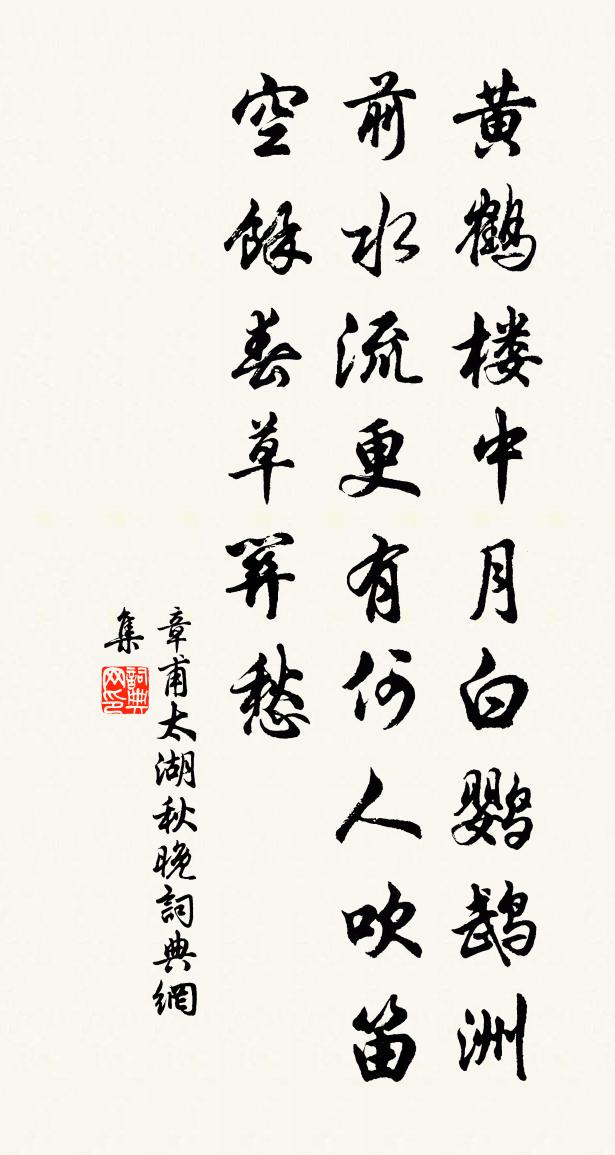 黄鹤楼中月白鹦鹉洲
前水流更有何人吹笛
空餘春草愁
章甫太湖秋晚詞典網
集
詞典
网印